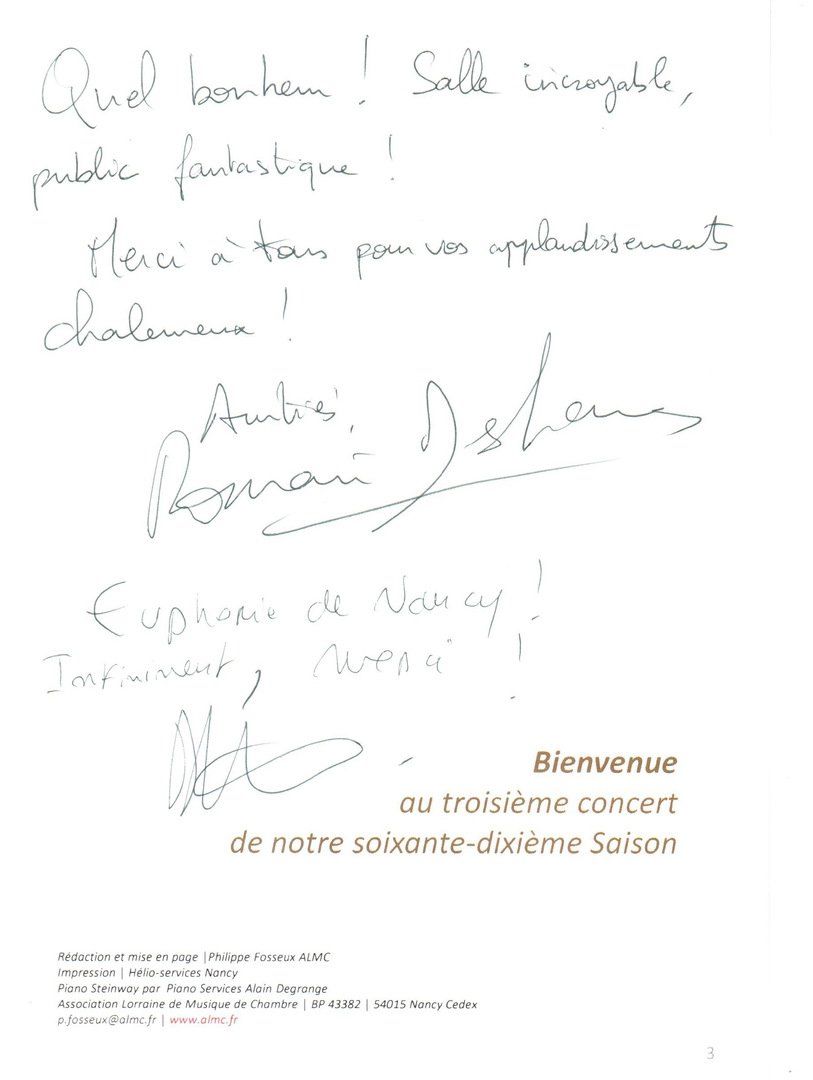 Quel bonheur ! Salle incroyable,
public fantastique !
Merci à tous pour vos applaudissements
chaleureux !
Amitiés,
Romain Deshames
Euphorie de Nancy !
Infiniment, merci !
Bienvenue
au troisième concert
de notre soixante-dixième Saison
Rédaction et mise en page | Philippe Fosseux ALMC
Impression | Hélio-services Nancy
Piano Steinway par Piano Services Alain Degrange
Association Lorraine de Musique de Chambre | BP 43382 | 54015 Nancy Cedex
p.fosseux@almc.fr | www.almc.fr
3